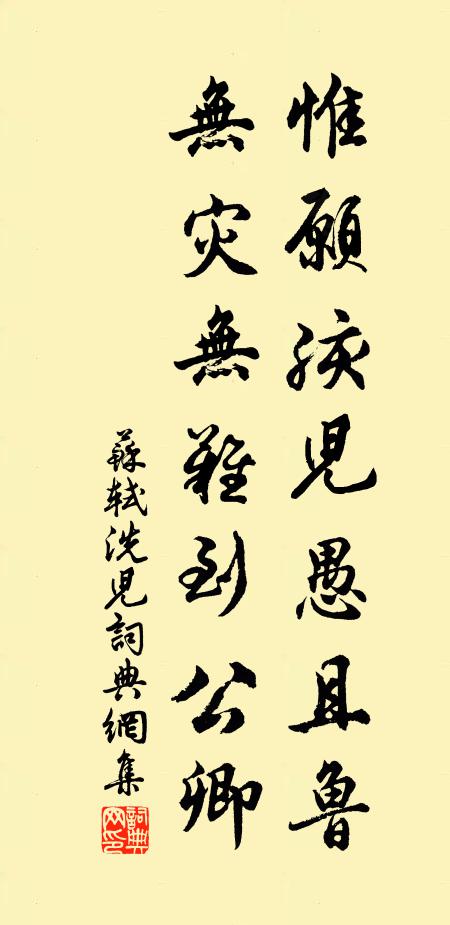 惟願孩兒愚且魯
無灾無難到公卿
蘇軾洗兒詞典網集
詞典网印